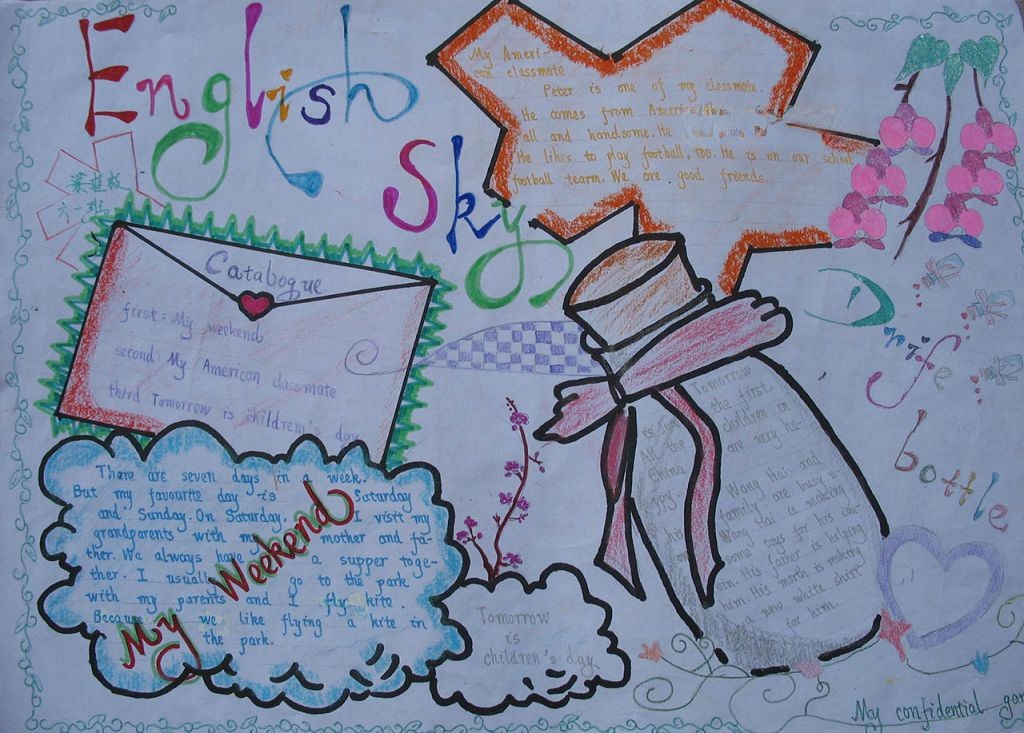 English
Sky
My Ameri-
can classmate
Peter is one of my classmate.
He comes from
all and handsome. He
He likes to play football, too. He is on our school
football tearm. We are good friends.
六一班
Catabogue
first: My weekend
second: My American classmate
third Tomorrow is children's day
Drife
bottle
There are seven days in a week.
But my favourite day is Saturday
and Sunday. On Saturday. I visit my
grandparents with my mother and fa-
ther. We always have a supper toge-
ther. I usually go to the park
with my parents and I fly kite.
Because we like flying a kite in
the park.
My Weekend
Tomorrow
is
children's day.
Tomorrow
is June the first.
All the children in
China are very ha-
ppy.
Wang Hai and
his family are busy
now. Wang Hai is making
some toys for his cou-
sin. His father is helping
him. His month is making
a new white shirt
for him.
My confidential gar